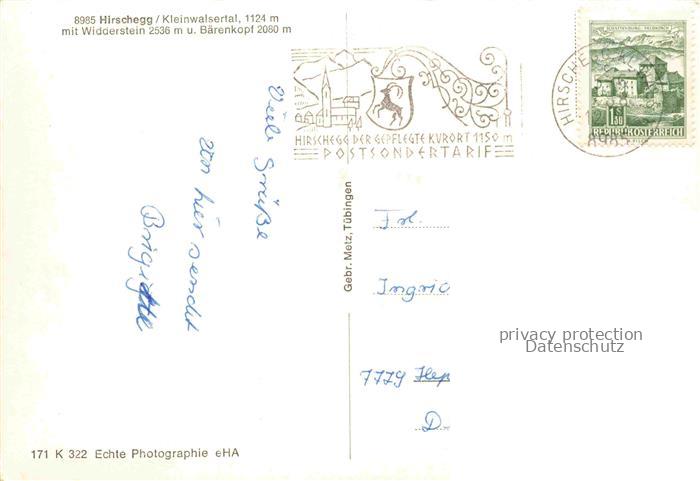 8985 Hirschegg / Kleinwalsertal, 1124 m
mit Widderstein 2536 m u. Bärenkopf 2080 m
HIRSCHEGG DER GEPFLEGTE KURORT 1150 m
POSTSONDERTARIF
HIRSCHEGG
8985
1.50
REPUBLIK ÖSTERREICH
Viele Grüße
von hier sendet
Brigitte
Gebr. Metz, Tübingen
Frl.
Ingrid
7779
D-
privacy protection
Datenschutz
171 K 322 Echte Photographie eHA